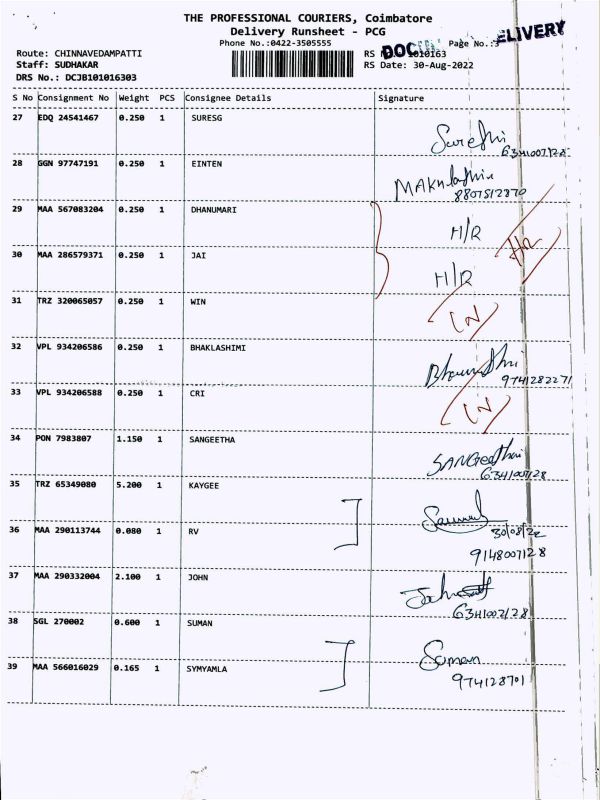 THE PROFESSIONAL COURIERS, Coimbatore
Delivery Runsheet - PCG
Phone No.:0422-3505555
Page No.:3
ELIVERY
Route: CHINNAVEDAMPATTI
Staff: SUDHAKAR
RS Date: 30-Aug-2022
DRS No.: DCJB101016303
S No Consignment No Weight PCS Consignee Details Signature
27 EDQ 24541467 0.250 1 SURESG
28 GGN 97747191 0.250 1 EINTEN
8807512870
29 MAA 567083204 0.250 1 DHANUMARI H/R H/R
30 MAA 286579371 0.250 1 JAI H/R
31 TRZ 320065057 0.250 1 WIN
32 VPL 934206586 0.250 1 BHAKLASHIMI
9741282271
33 VPL 934206588 0.250 1 CRI
34 PON 7983807 1.150 1 SANGEETHA
35 TRZ 65349080 5.200 1 KAYGEE
30/08/22
36 MAA 290113744 0.080 1 RV
9148007128
37 MAA 290332004 2.100 1 JOHN
38 SGL 270002 0.600 1 SUMAN
39 MAA 566016029 0.165 1 SYMYAMLA Suman
974128701